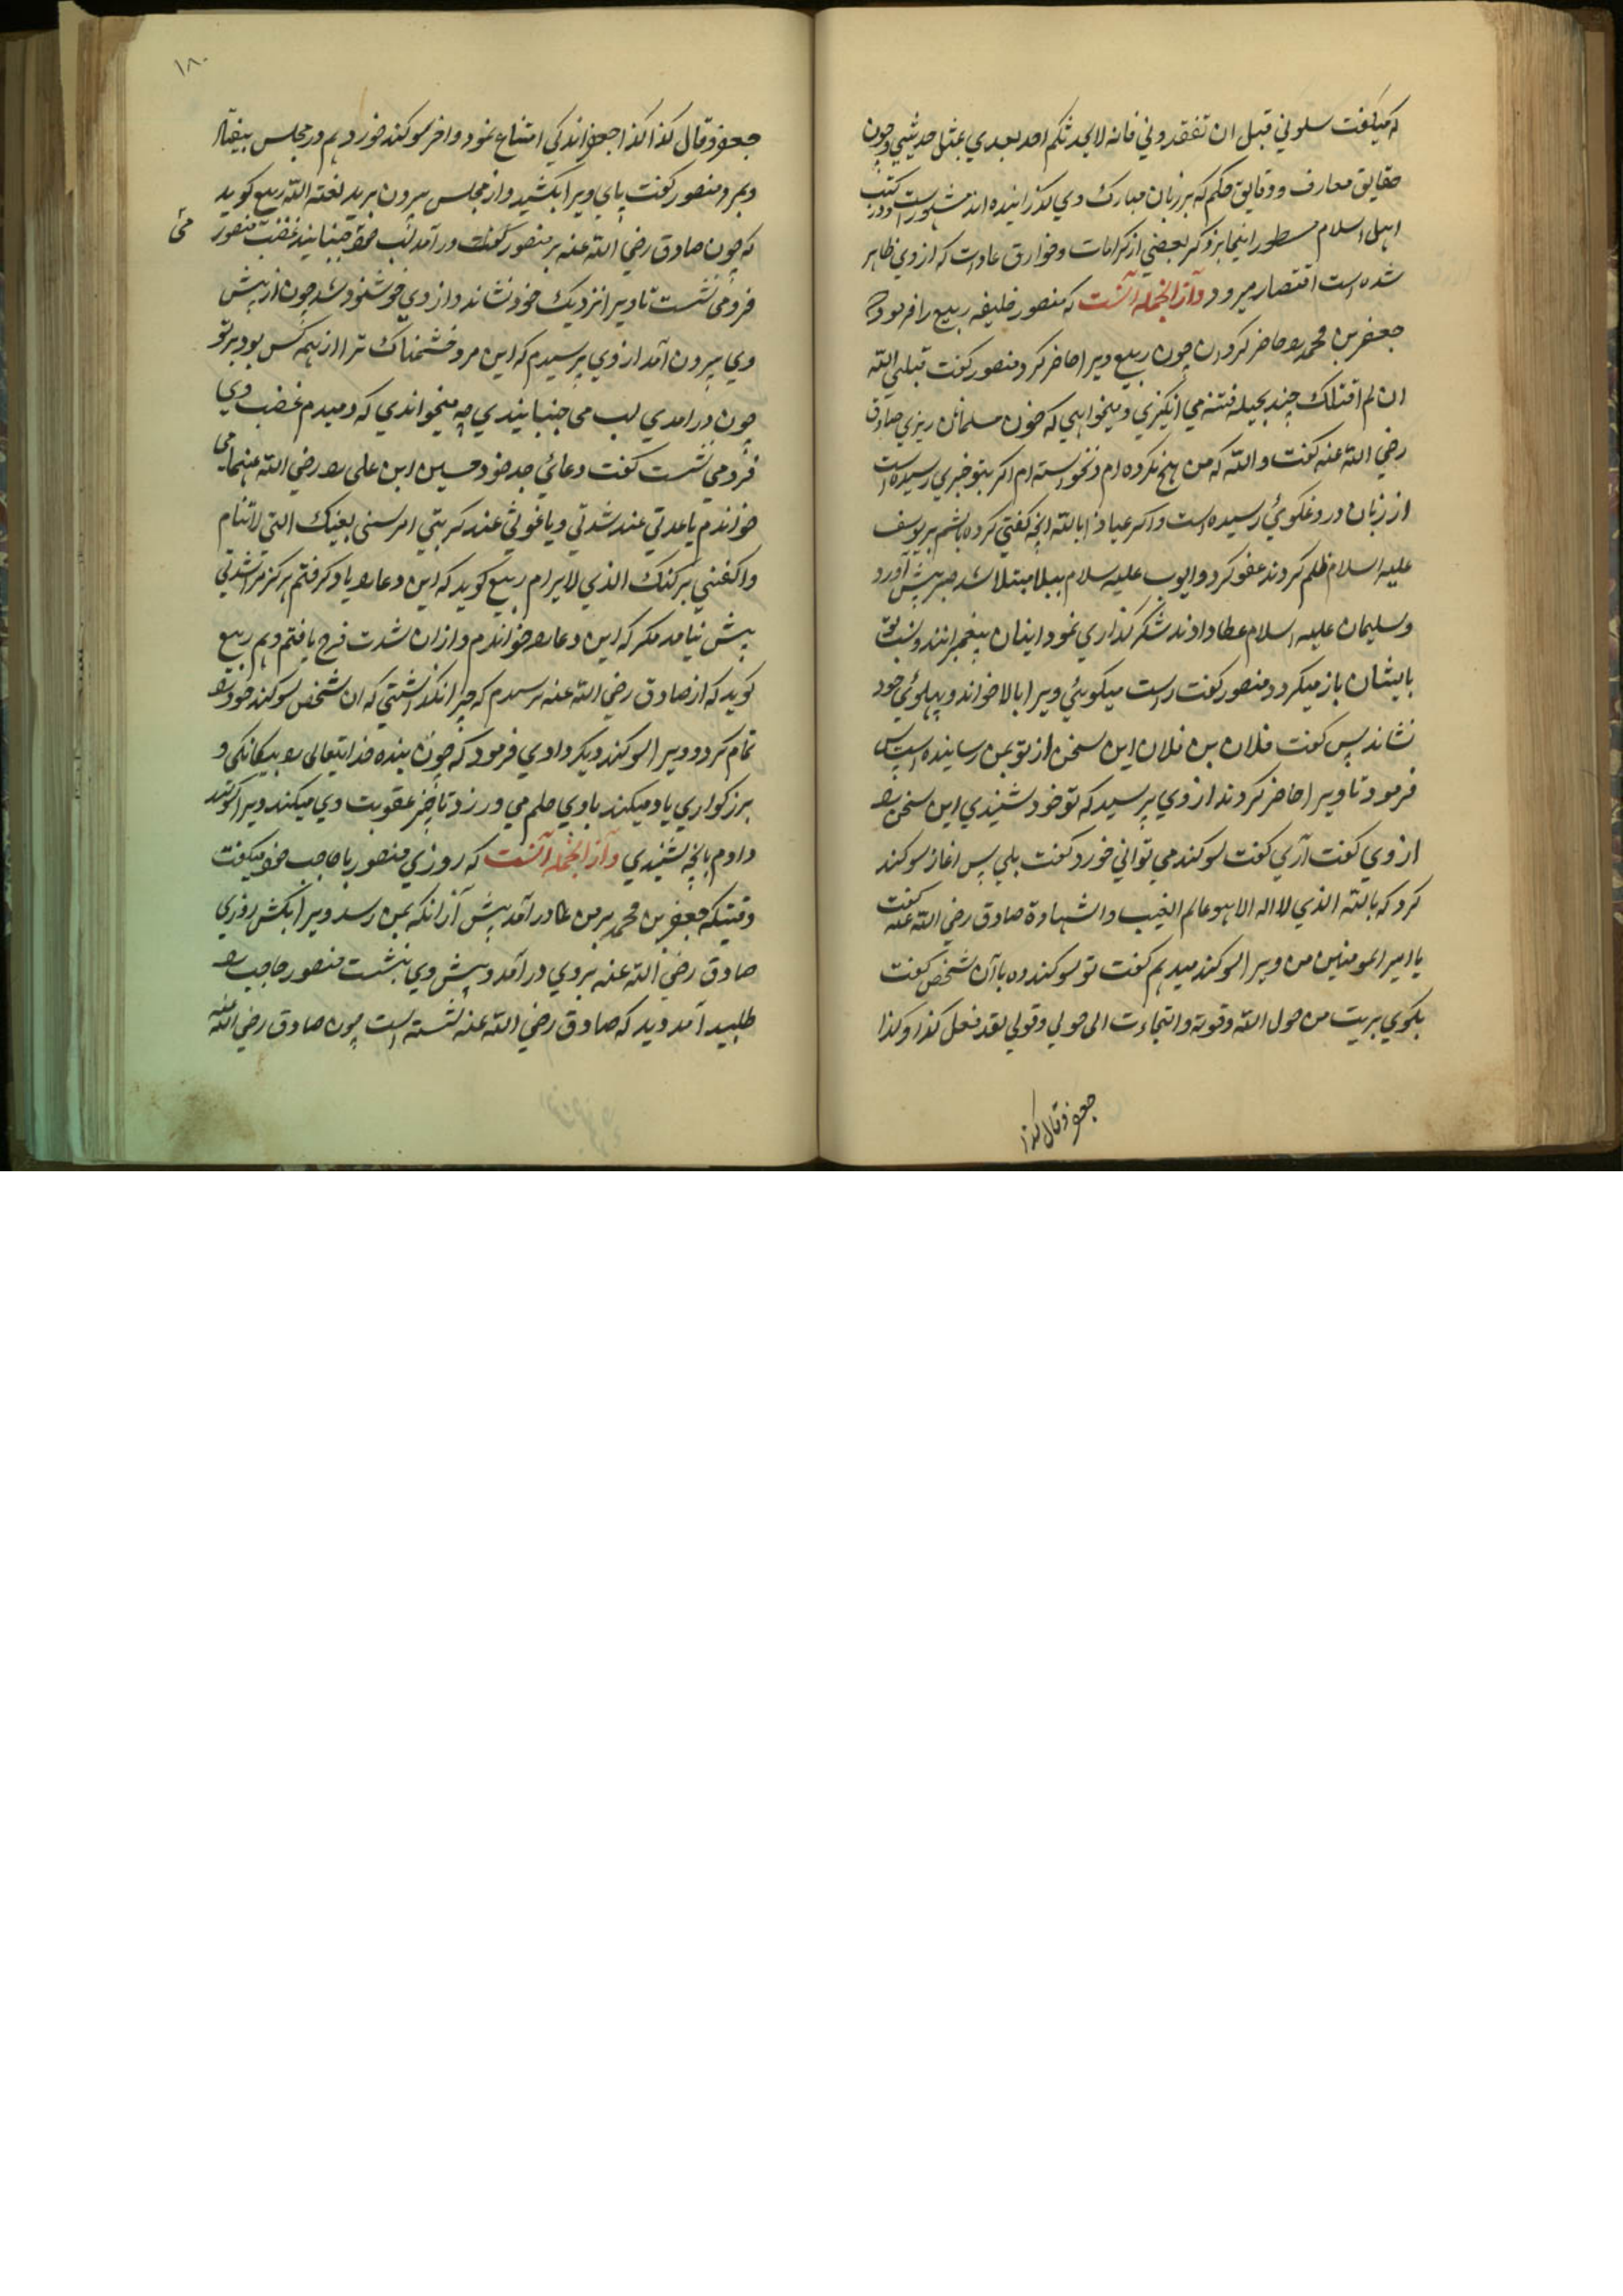 که میگفت سلونی قبل ان تفقدونی فانه لا یحدثکم احد بعدی بمثل حدیثی وچون
حقایق معارف ودقایق حکم که بر زبان مبارک وی گذرانیده اند مشهور است ودر کتب
اهل اسلام مسطور اینجا بذکر بعضی از کرامات وخوارق عادات که از وی ظاهر
شده است اقتصار میرود وازانجمله آنست که منصور خلیفه ربیع را فرمود
جعفر بن محمد را حاضر کردن چون ربیع ویرا حاضر کرد منصور گفت قتلنی الله
ان لم اقتلک چند بحیله فتنه می انگیزی ومیخواهی که خون مسلمانان ریزی صادق
رضی الله عنه گفت والله که من هیچ نکرده ام ونخواسته ام اگر بتو خبری رسیده است
از زبان دروغگوئی رسیده است واگر عیاذا بالله انچه گفتی کرده باشم بر یوسف
علیه السلام ظلم کردند عفو کرد وایوب علیه سلام ببلا مبتلا شد صبر پیش آورد
وسلیمان علیه السلام عطا دادند شکر گذاری نمود اینان پیغمبرانند ونسب تو
بایشان باز میگردد منصور گفت راست میگوئی ویرا بالا خواند وپهلوئی خود
نشاند پس گفت فلان بن فلان این سخن از تو بمن رسانیده است پس
فرمود تا ویرا حاضر کردند از وی پرسید که تو خود شنیدی این سخن را
از وی گفت آری گفت سوکند می توانی خورد گفت بلی پس اغاز سوکند
کرد که بالله الذی لا اله الا هو عالم الغیب والشهادة صادق رضی الله عنه گفت
یا امیر المومنین من ویرا سوکند میدهم گفت تو سوکند ده باآن شخص گفت
بگوی بریت من حول الله وقوته والتجاءت الی حولی وقوتی لقد فعل کذا وکذا
جعفر وقال کذا
۱۸۰
جعفر وقال کذا کذا جعفر اندکی امتناع نمود واخر سوکند خورد هم در مجلس بیفتاد
وبمرد منصور گفت پای ویرا بکشید واز مجلس بیرون برید لعنه الله ربیع گوید
که چون صادق رضی الله عنه بر منصور در آمد لب خود جنبانید غضب منصور
می
فرو می نشست تا ویرا نزدیک خود نشاند واز وی خوشنود شد چون از پیش
وی بیرون آمد از وی پرسیدم که این مرد خشمناک ترا از همه کس بود بر تو
چون در امدی لب می جنبانیدی چه میخواندی که دمبدم غضب وی
فرو می نشست گفت دعائی جد خود حسین ابن علی را رضی الله عنهما می
خواندم یا عدتی عند شدتی ویا غوثی عند کربتی احرسنی بعینک التی لا تنام
واکفنی برکنک الذی لا یرام ربیع گوید که این دعا را یاد گرفتم هرگز مرا شدتی
پیش نیامد مگر که این دعا را خواندم وازان شدت فرح یافتم وهم ربیع
گوید که از صادق رضی الله عنه پرسیدم که چرا نگذاشتی که ان شخص سوکند خود را
تمام کرد وویرا سوکند دیگر دادی فرمود که چون بنده خدایتعالی را بیگانگی و
بزرگواری یاد میکند با وی حلم می ورزد تاخیر عقوبت وی میکند ویرا سوکند
دادم بانچه شنیدی وازانجمله آنست که روزی منصور با حاجب خود میگفت
وقتیکه جعفر بن محمد بر من در آمد پیش ازانکه بمن رسد ویرا بکش روزی
صادق رضی الله عنه بر وی در آمد وپیش وی بنشست منصور حاجب را
طلبید آمد ودید که صادق رضی الله عنه نشسته است چون صادق رضی الله عنه